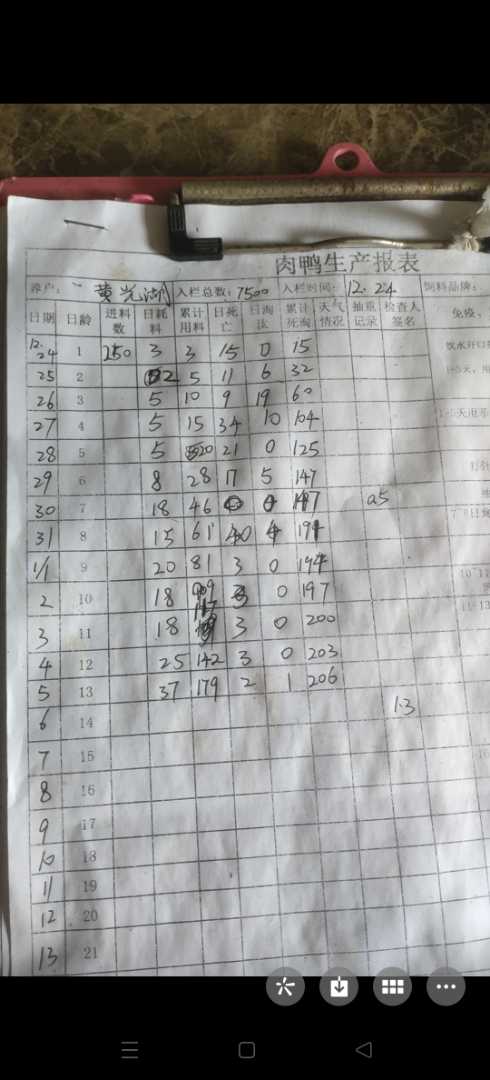 肉鸭生产报表
养户: 黄光湖 入栏总数: 7500 入栏时间: 12.24 饲料品牌:
日期 日龄 进料数 日耗料 累计用料 日死亡 日淘汰 累计死淘 天气情况 抽重记录 检查人签名 免疫:
12.24 1 250 3 3 15 0 15
25 2 2 5 11 6 32
26 3 5 10 9 19 60
27 4 5 15 34 10 104
28 5 5 20 21 0 125
29 6 8 28 17 5 147
30 7 18 46 0 0 147 0.5
31 8 15 61 40 4 191
1/1 9 20 81 3 0 194
2 10 18 99 3 0 197
3 11 18 117 3 0 200
4 12 25 142 3 0 203
5 13 37 179 2 1 206
6 14 1.3
7 15
8 16
9 17
10 18
11 19
12 20
13 21